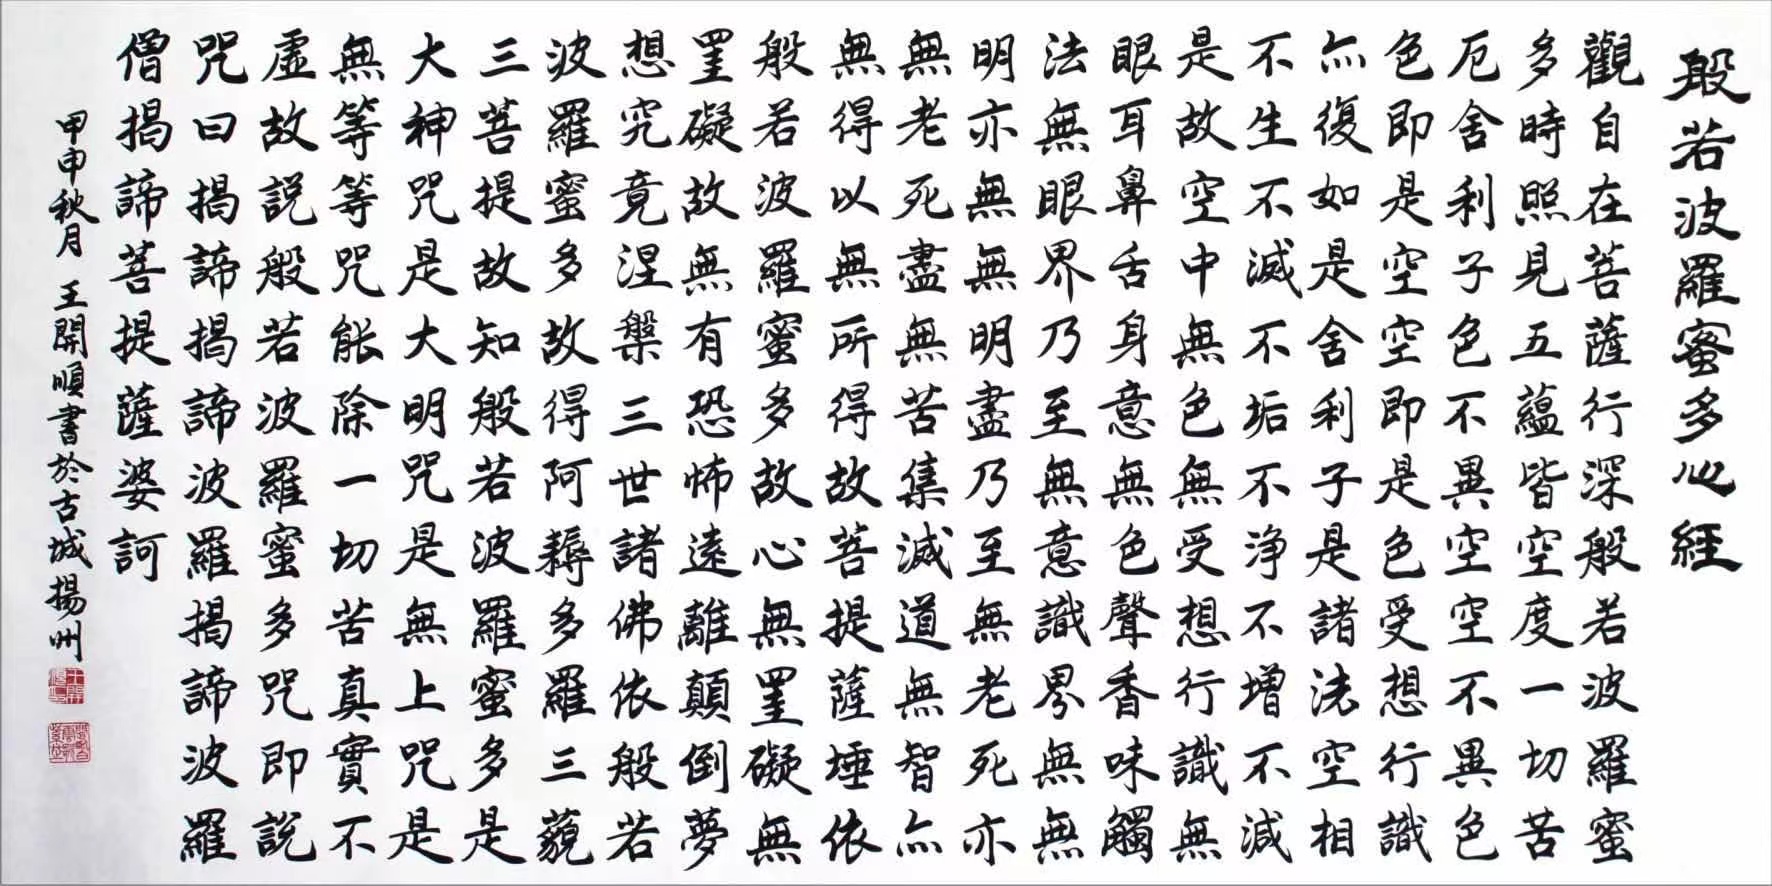 般若波羅蜜多心經
觀自在菩薩行深般若波羅蜜
多時照見五蘊皆空度一切苦
厄舍利子色不異空空不異色
色即是空空即是色受想行識
亦復如是舍利子是諸法空相
不生不滅不垢不浄不增不減
是故空中無色無受想行識無
眼耳鼻舌身意無色聲香味觸
法無眼界乃至無意識界無無
明亦無無明盡乃至無老死亦
無老死盡無苦集滅道無智亦
無得以無所得故菩提薩埵依
般若波羅蜜多故心無罣礙無
罣礙故無有恐怖遠離顛倒夢
想究竟涅槃三世諸佛依般若
波羅蜜多故得阿耨多羅三藐
三菩提故知般若波羅蜜多是
大神咒是大明咒是無上咒是
無等等咒能除一切苦真實不
虛故説般若波羅蜜多咒即說
咒曰揭諦揭諦波羅揭諦波羅
僧揭諦菩提薩婆訶
甲申秋月 王開順書於古城揚州